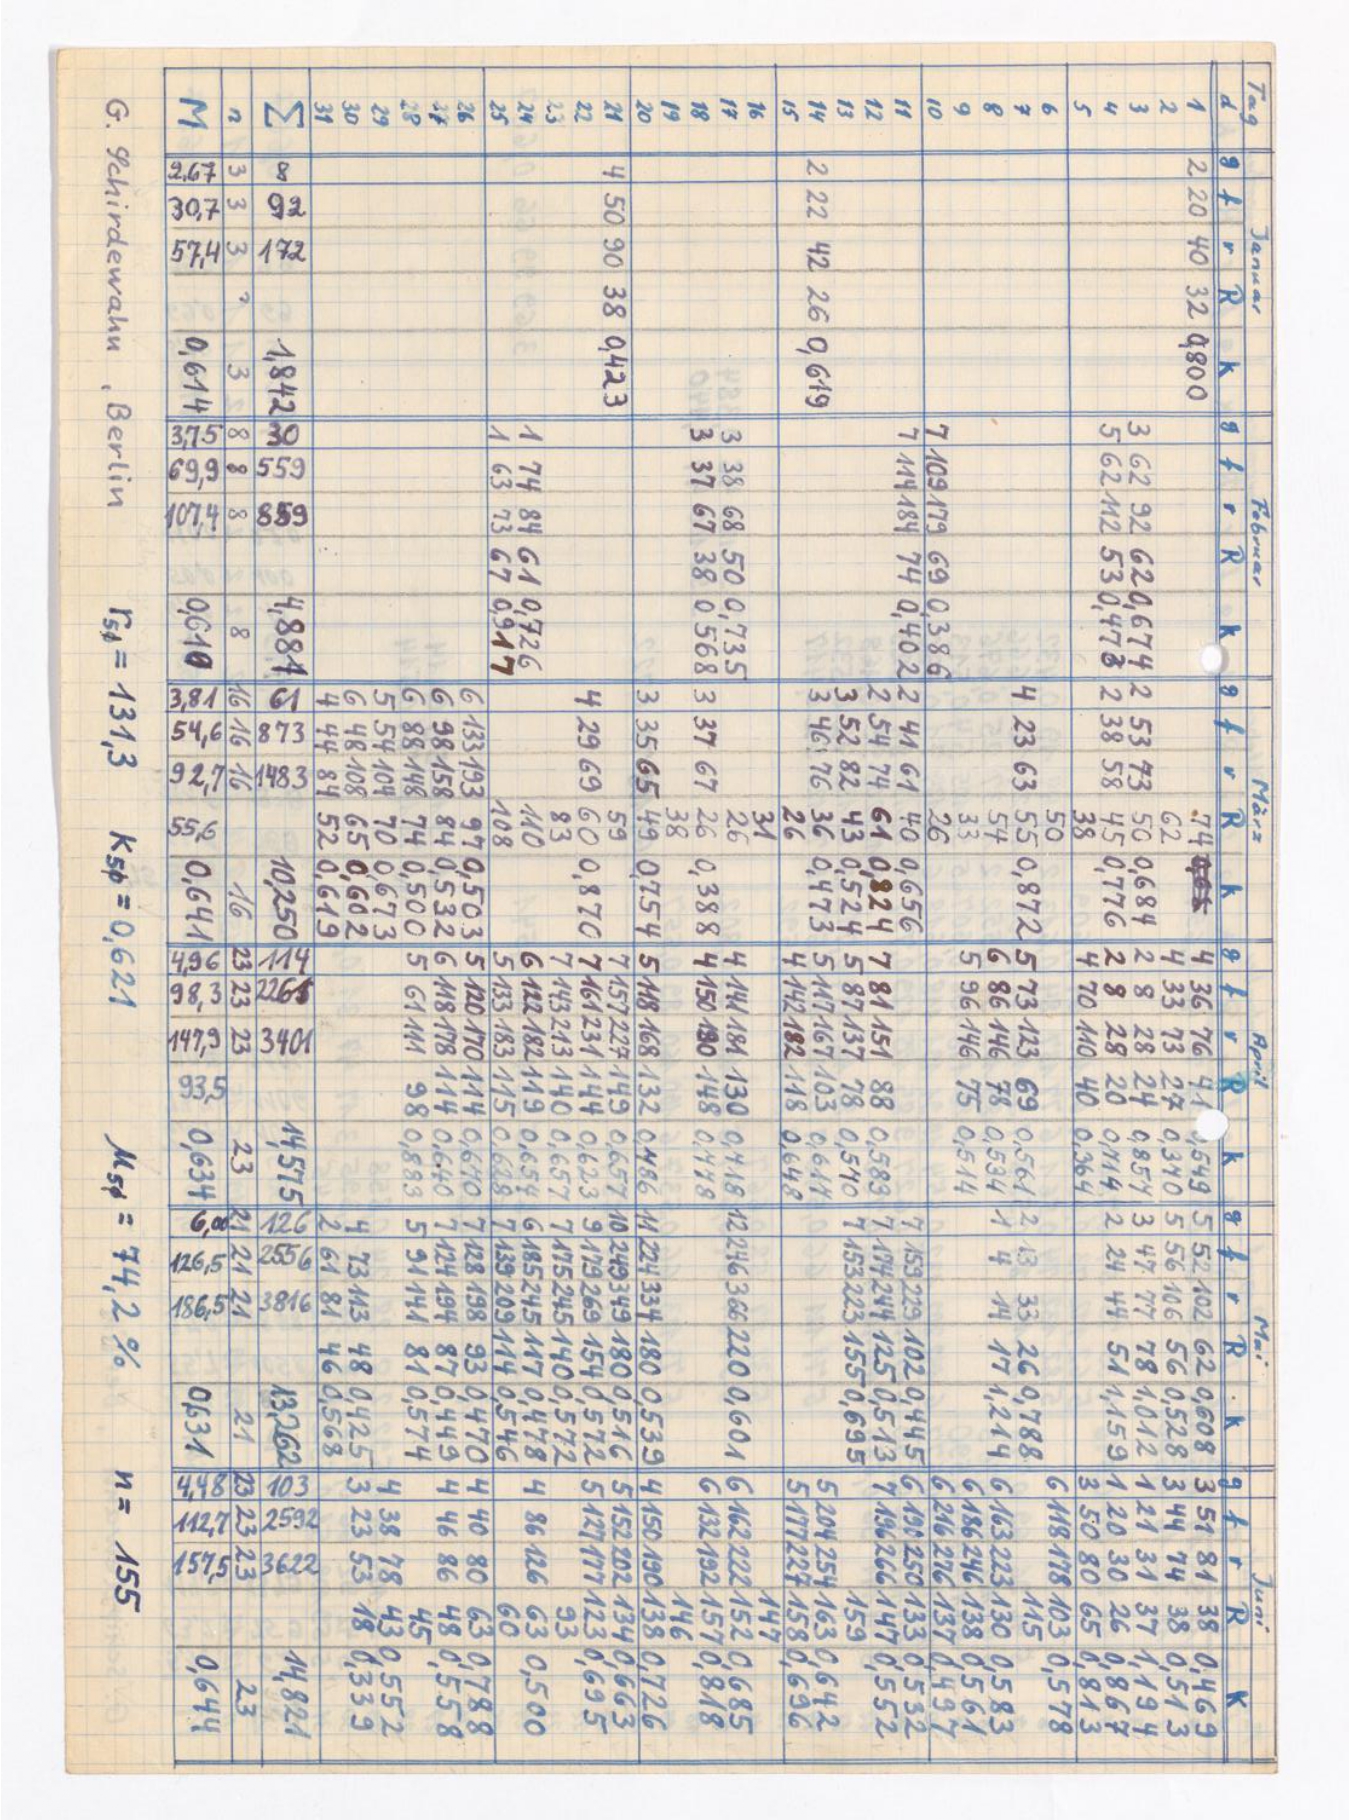 Tag Januar Februar März April Mai Juni
d g f r R k g f r R k g f r R k g f r R k g f r R k g f r R K
1 2 20 40 32 0,800 74 4 36 76 41 0,549 5 52 102 62 0,608 3 51 81 38 0,469
2 62 4 33 73 27 0,340 5 56 106 56 0,528 3 44 74 38 0,513
3 3 62 92 62 0,674 2 53 73 50 0,684 2 8 28 24 0,857 3 47 77 78 1,012 1 21 31 37 1,194
4 5 62 112 53 0,473 2 38 58 45 0,776 2 8 28 20 0,714 2 24 44 51 1,159 1 20 30 26 0,867
5 38 4 70 110 40 0,364 3 50 80 65 0,813
6 50 6 118 178 103 0,578
7 4 23 63 55 0,872 5 73 123 69 0,561 2 13 33 26 0,788 115
8 54 6 86 146 78 0,534 1 4 14 17 1,214 6 163 223 130 0,583
9 33 5 96 146 75 0,514 6 186 246 138 0,561
10 7 109 179 69 0,386 26 6 216 276 137 0,497
11 7 114 184 74 0,402 2 41 61 40 0,656 7 159 229 102 0,445 6 190 250 133 0,532
12 2 54 74 61 0,824 7 81 151 88 0,583 7 174 244 125 0,513 7 196 266 147 0,552
13 3 52 82 43 0,524 5 87 137 78 0,540 7 153 223 155 0,695 159
14 2 22 42 26 0,619 3 46 76 36 0,473 5 117 167 103 0,617 5 204 254 163 0,642
15 26 4 142 182 118 0,648 5 177 227 158 0,696
16 31 147
17 3 38 68 50 0,735 26 4 141 181 130 0,718 12 246 366 220 0,601 6 162 222 152 0,685
18 3 37 67 38 0,568 3 37 67 26 0,388 4 150 190 148 0,778 6 132 192 157 0,818
19 38 146
20 3 35 65 49 0,754 5 118 168 132 0,786 11 224 334 180 0,539 4 150 190 138 0,726
21 4 50 90 38 0,423 59 7 157 227 149 0,657 10 249 349 180 0,516 5 152 202 134 0,663
22 4 29 69 60 0,870 7 161 231 144 0,623 9 179 269 154 0,572 5 127 177 123 0,695
23 83 7 143 213 140 0,657 7 175 245 140 0,572 93
24 1 74 84 61 0,726 110 6 122 182 119 0,654 6 185 245 117 0,478 4 86 126 63 0,500
25 1 63 73 67 0,917 108 5 133 183 115 0,628 7 139 209 114 0,546 60
26 6 133 193 97 0,503 5 120 170 114 0,670 7 128 198 93 0,470 4 40 80 63 0,788
27 6 98 158 84 0,532 6 118 178 114 0,640 7 124 194 87 0,449 4 46 86 48 0,558
28 6 88 148 74 0,500 5 61 111 98 0,883 5 91 141 81 0,574 45
29 5 54 104 70 0,673 4 38 78 43 0,552
30 6 48 108 65 0,602 4 73 113 48 0,425 3 23 53 18 0,339
31 4 44 84 52 0,619 2 61 81 46 0,568
Σ 8 92 172 1,842 30 559 859 4,881 61 873 1483 10,250 114 2261 3401 14,575 126 2556 3816 13,262 103 2592 3622 14,821
n 3 3 3 ? 3 8 8 8 8 16 16 16 16 23 23 23 23 21 21 21 21 23 23 23 23
M 2,67 30,7 57,4 0,614 3,75 69,9 107,4 0,610 3,81 54,6 92,7 55,6 0,641 4,96 98,3 147,9 93,5 0,634 6,00 126,5 186,5 0,631 4,48 112,7 157,5 0,644
G. Schirdewahn, Berlin r5φ = 131,3 K5φ = 0,621 M5φ = 74,2 % n = 155